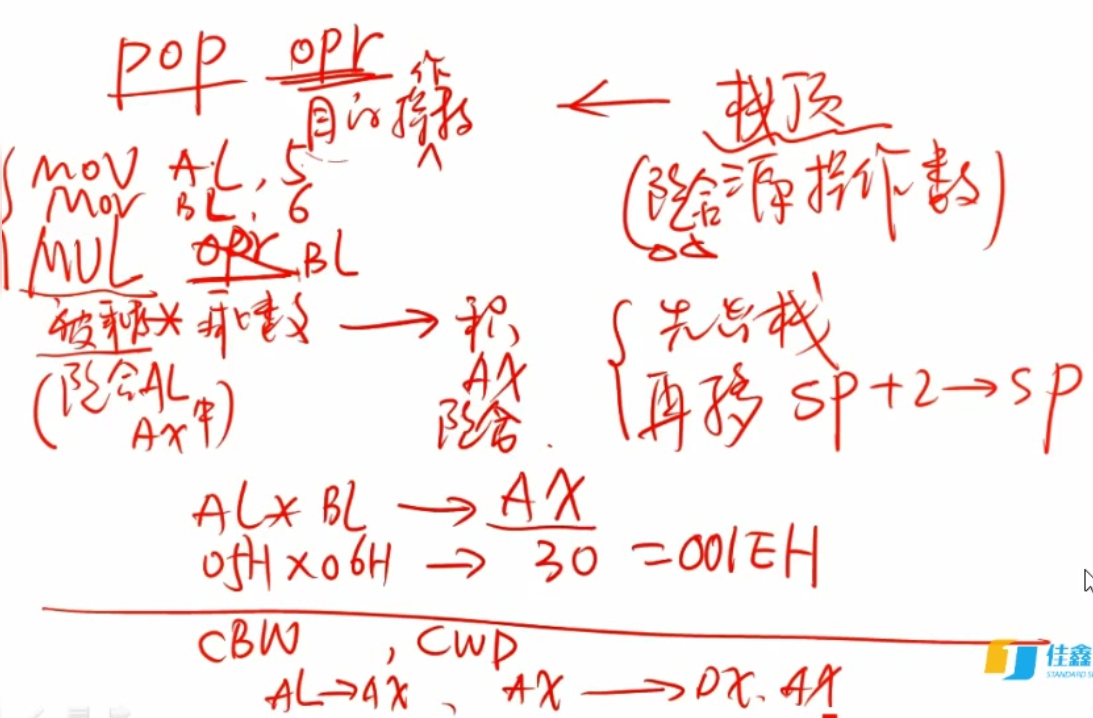 POP opr ← 栈顶
目的操作数 (隐含源操作数)
MOV AL, 5
MOV BL, 6
MUL opr BL
被乘数 × 乘数 → 积 { 先出栈
(隐含AL AX 再移 SP+2→SP
AX中) 隐含.
AL×BL → AX
05H×06H → 30 =001EH
CBW , CWD
AL→AX 、 AX → DX. AX
佳鑫
STANDARD S